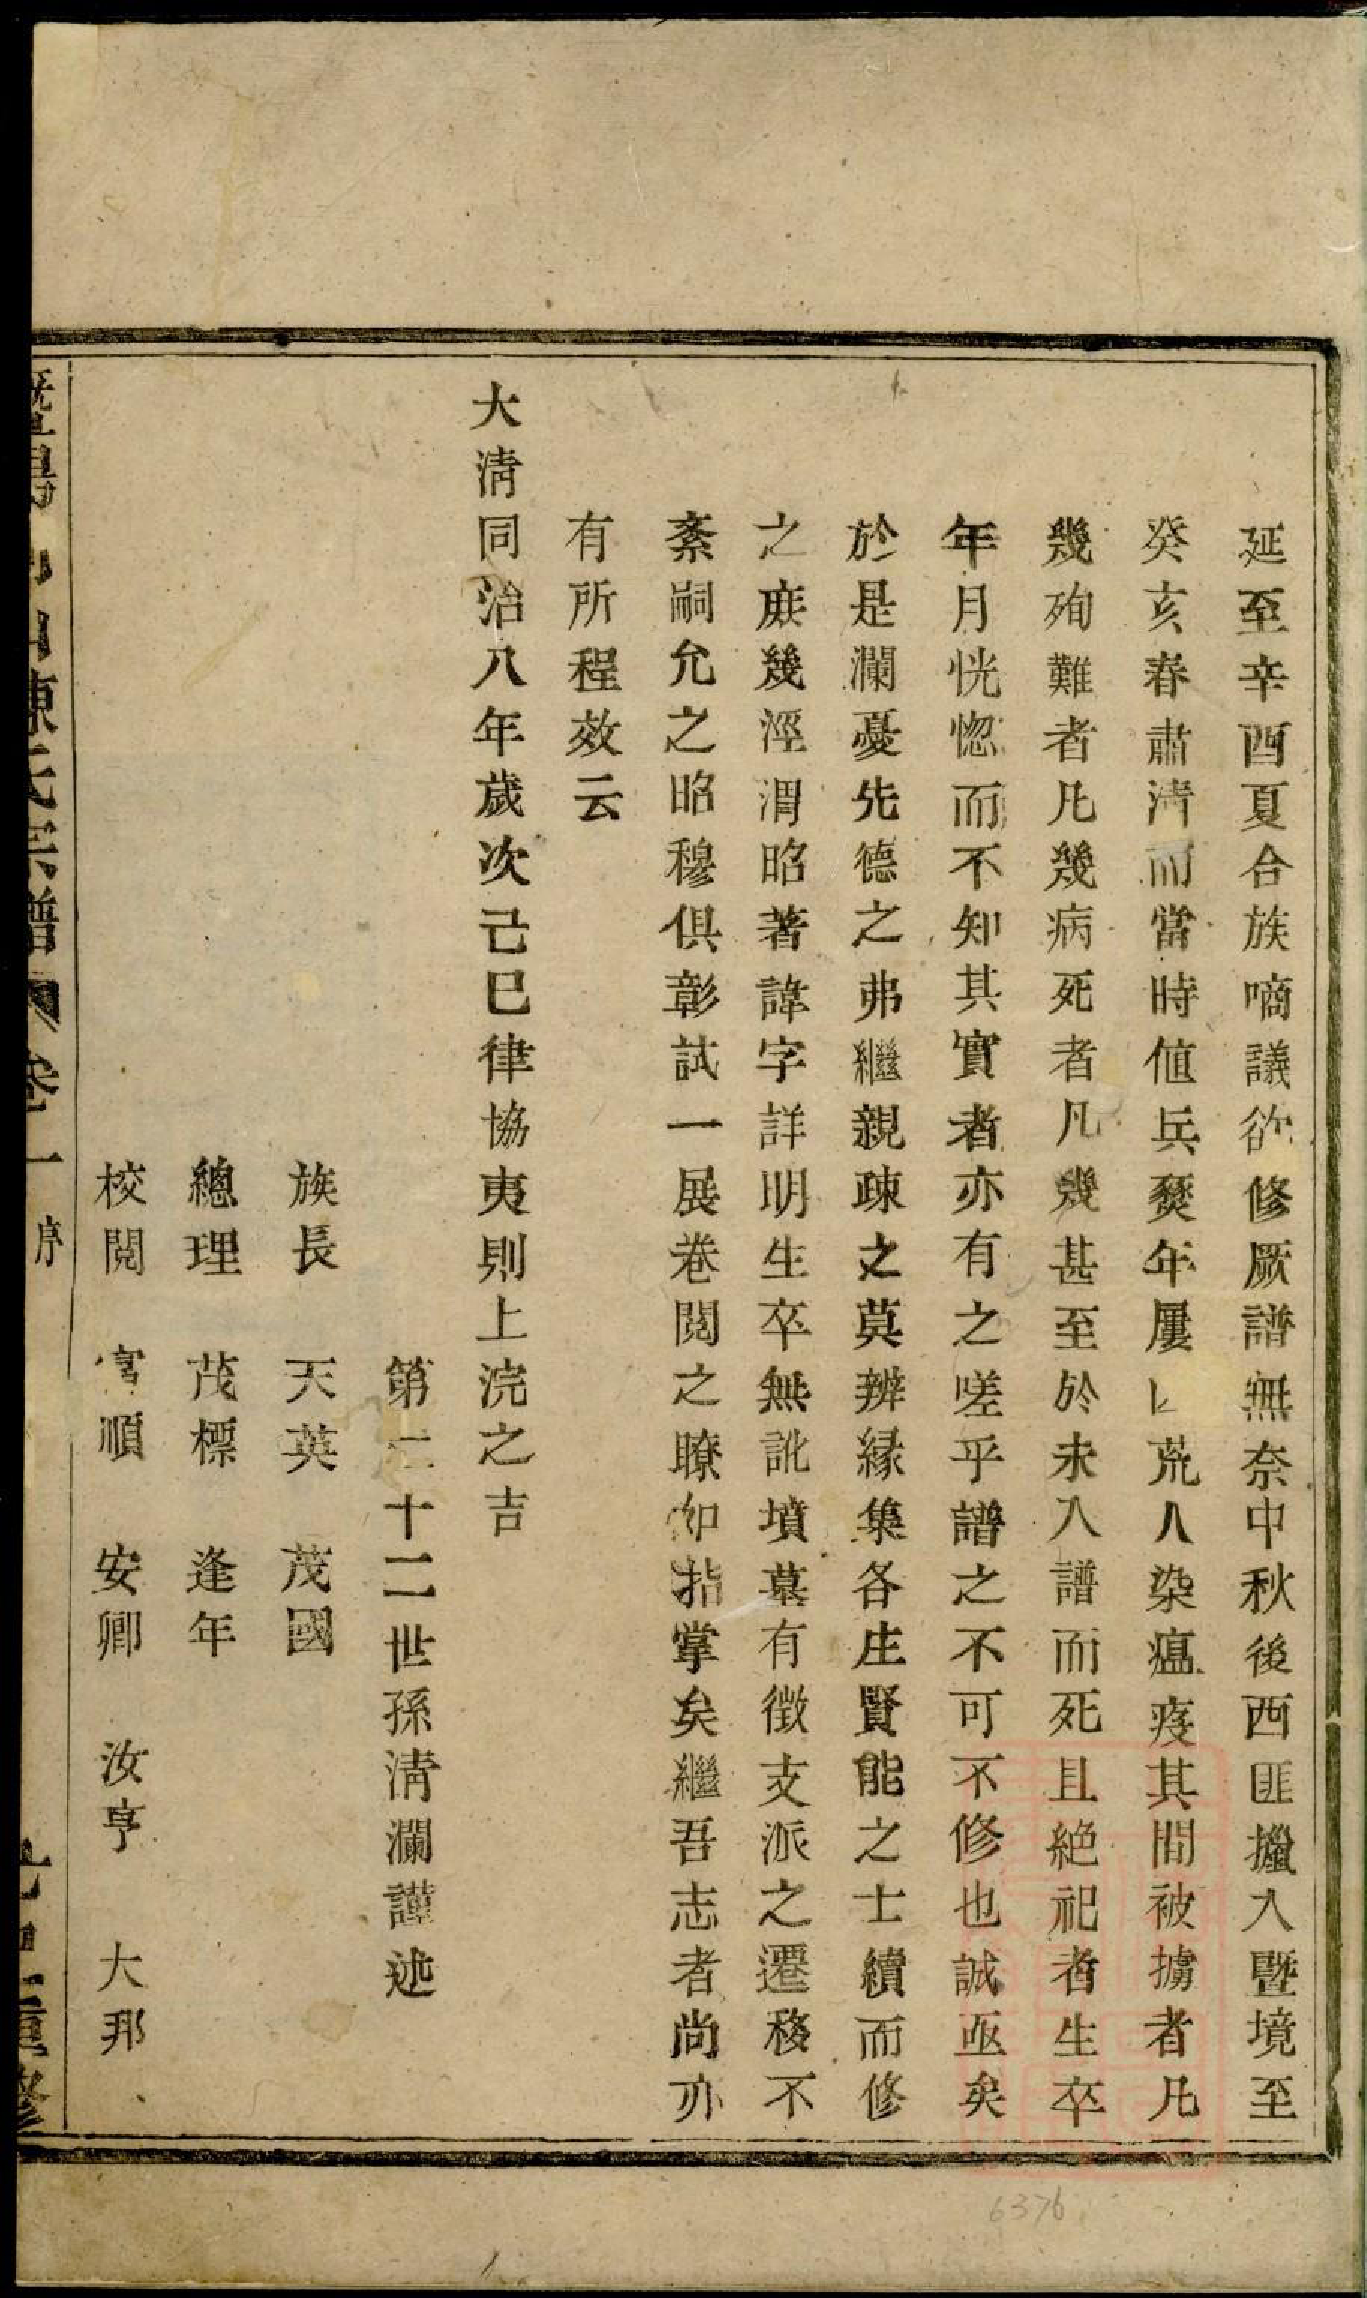 延至辛酉夏合族嘀議欲修厥譜無奈中秋後西匪擸入暨境至
癸亥春肅淸而當時值兵燹年屢荒人染瘟疫其間被擄者凡
幾殉難者凡幾病死者凡幾甚至於未入譜而死且絕祀者生卒
年月恍惚而不知其實者亦有之嗟乎譜之不可不修也誠亟矣
於是瀾憂先德之弗繼親疎之莫辨縁集各庄賢能之士續而修
之庻幾涇渭昭著諱字詳明生卒無訛墳墓有徴支派之遷移不
紊嗣允之昭穆俱彰試一展巻閱之瞭如指掌矣繼吾志者尚亦
有所程效云
大淸同治八年歲次己巳律協夷則上浣之吉
第二十二世孫淸瀾謹述
族長 天英 茂國
總理 茂標 逢年
校閱 富順 安卿 汝亨 大邦
暨陽 陳氏宗譜 卷一 序 重修
6376